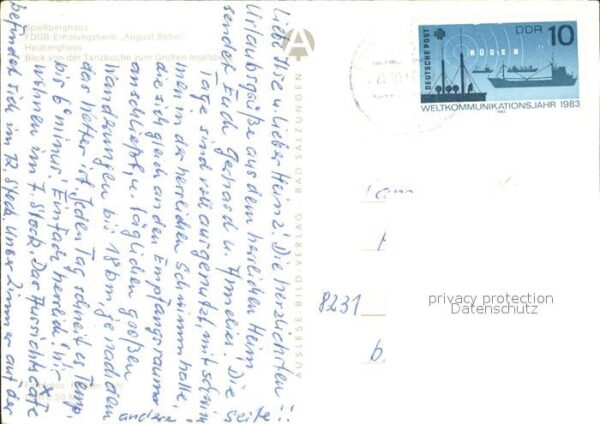 Spießberghaus
FDGB-Erholungsheim „August Bebel"
Heuberghaus
Blick von der Tanzbuche zum Großen Inselsberg
Liebe Ilse u. lieber Heinz! Die herzlichsten
Urlaubsgrüße aus dem herrlichen Heim
senden Euch Gerhard u. Annelies. Die
Tage sind voll ausgenutzt, mit schwim
men in der herrlichen Schwimmhalle,
die sich gleich an den Empfangsraum
anschließt, u. täglichen großen
Wandrungen bis 18 km, je nach dem
das Wetter ist. Jeden Tag schneit es, Temp.
bis 6 minus. Einfach herrlich. Wir
wohnen im 7. Stock. Das Aussichtscafe
befindet sich im 12. Stock. Unser Zimmer auf der
andere Seite!!
AUSLESE-BILD-VERLAG · BAD SALZUNGEN
DEUTSCHE POST
DDR 10
RÜGEN
WELTKOMMUNIKATIONSJAHR 1983
8231
privacy protection
Datenschutz